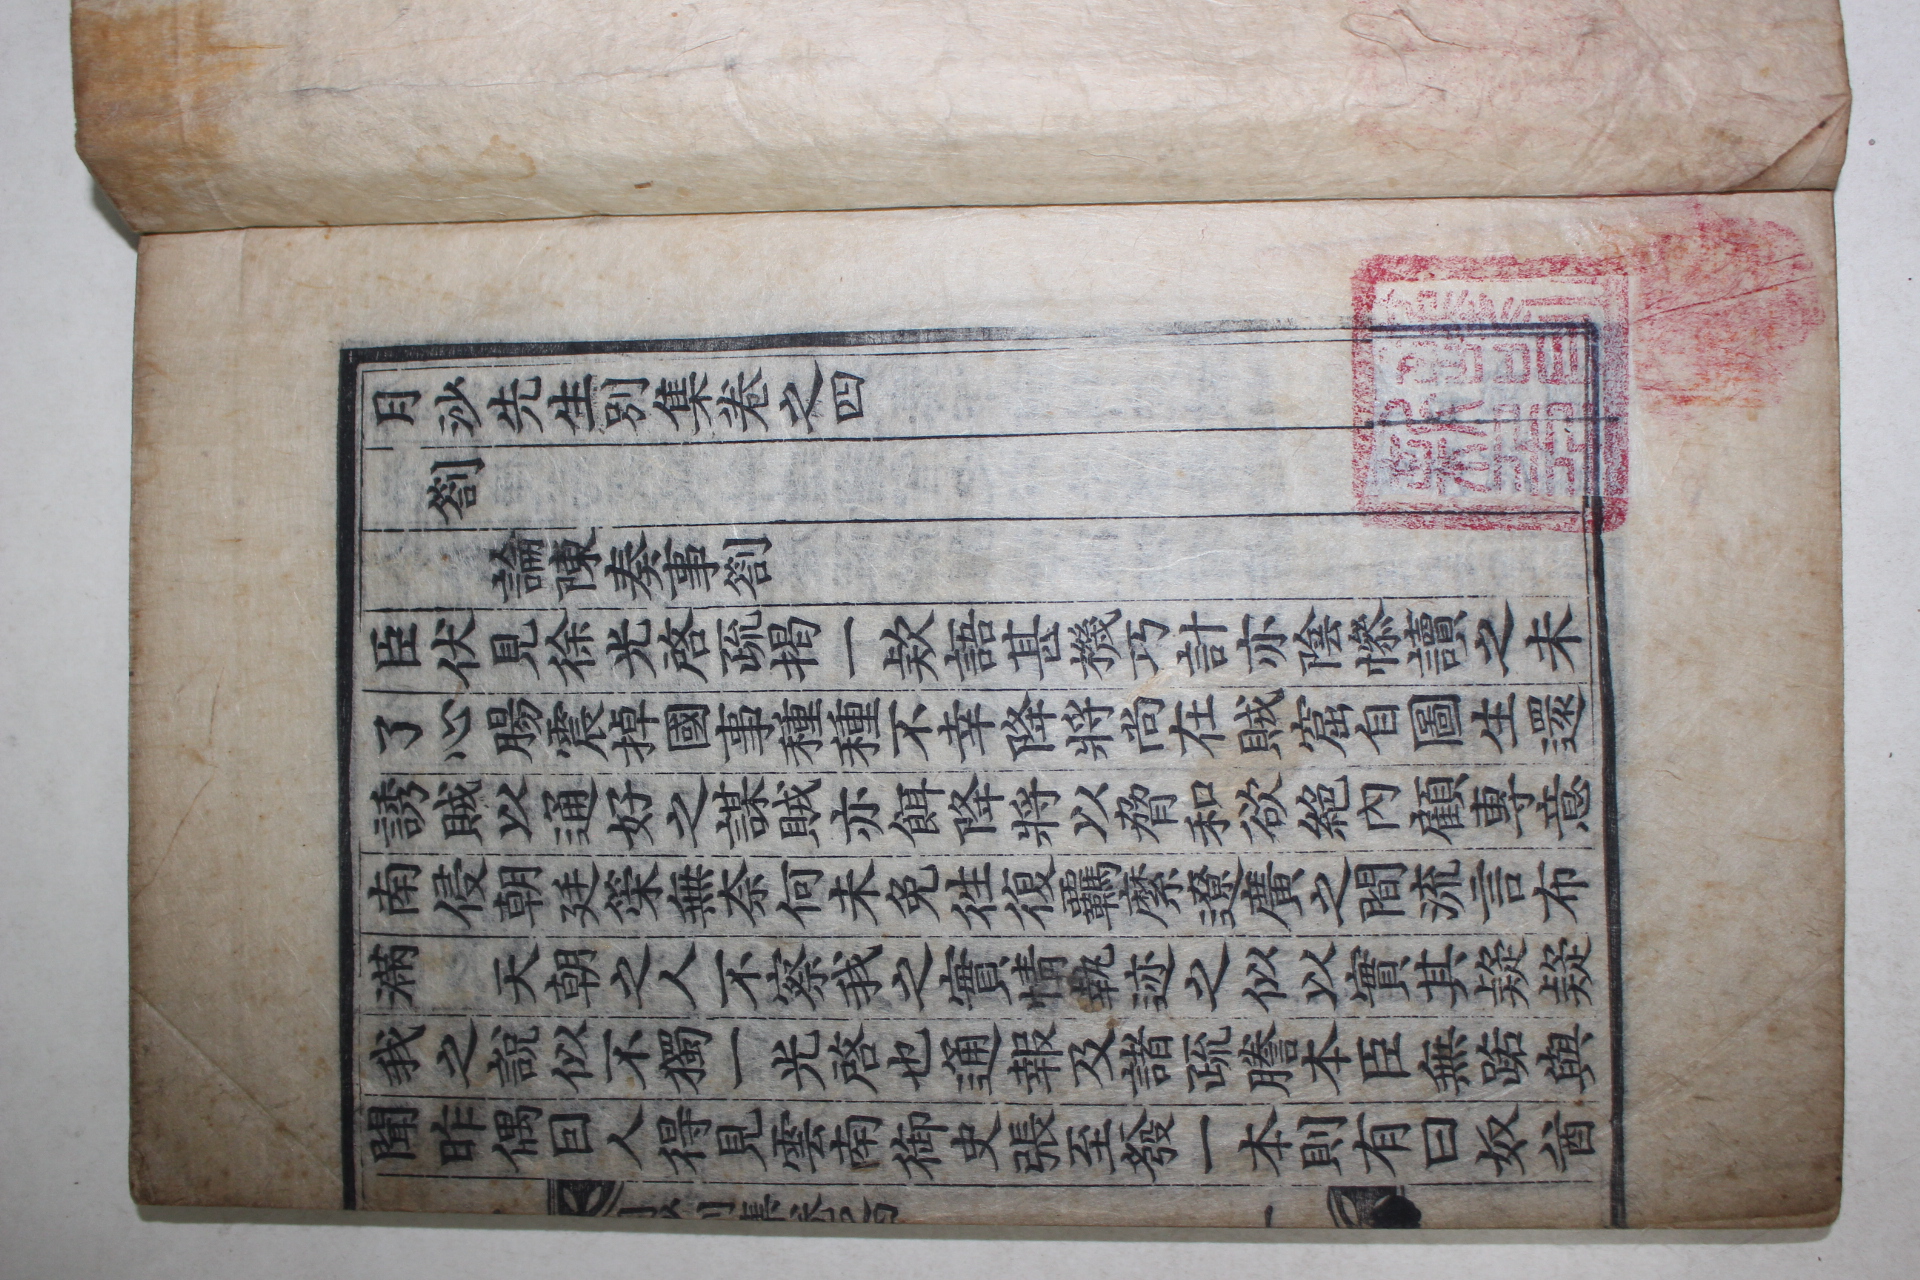 月沙先生別集卷之四
劄
論陳奏事劄
臣伏見徐光啓疏揭一款語甚機巧計亦陰慘讀之未
了心腸震掉國事種種不幸降將尚在賊窟自圖生還
誘賊以通好之謀賊亦餌降將以脅和欲絶內顧專意
南侵朝廷策無奈何未免徃復羈縻遼廣之間流言布
滿 天朝之人不察我之實情執迹之似以實其疑疑
我之說似不獨一光啓也通報及諸疏謄本臣無路與
聞昨偶因人得見雲南御史張至發一本則有曰奴酋
月沙別集卷之四
一